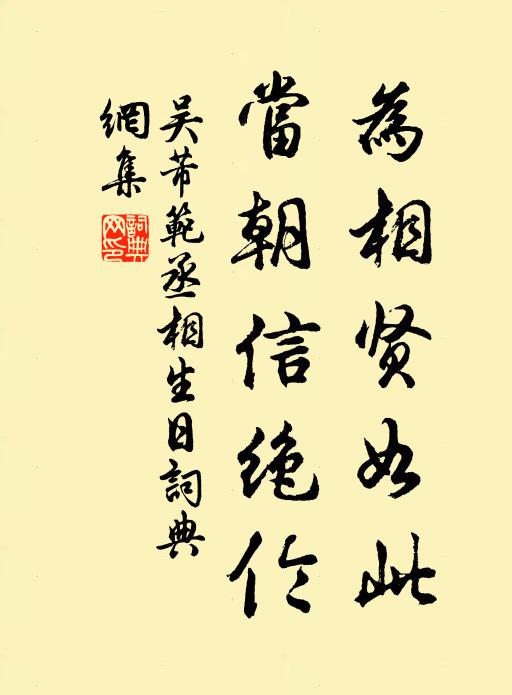 為相贤如此
當朝信绝伦
吴芾範丞相生日詞典
網集
詞典網印